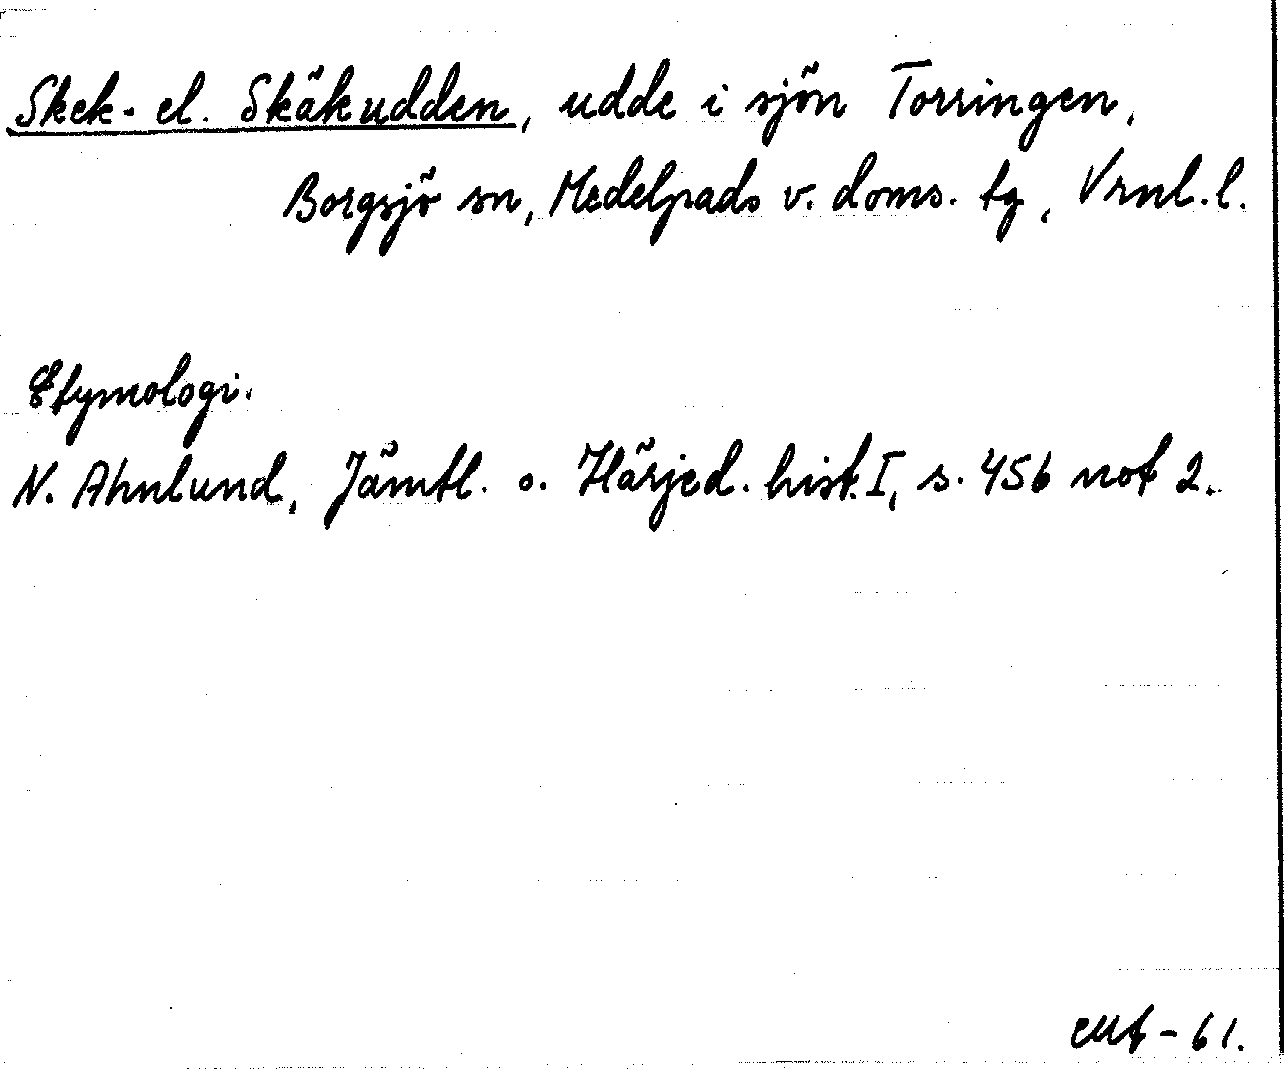 Skek- el. Skäkudden, udde i sjön Torringen,
Borgsjö sn, Medelpads v. doms. tg, Vrnl. l.
Etymologi.
N. Ahnlund, Jämtl. o. Härjed. hist. I, s. 456 not 2.
-61.